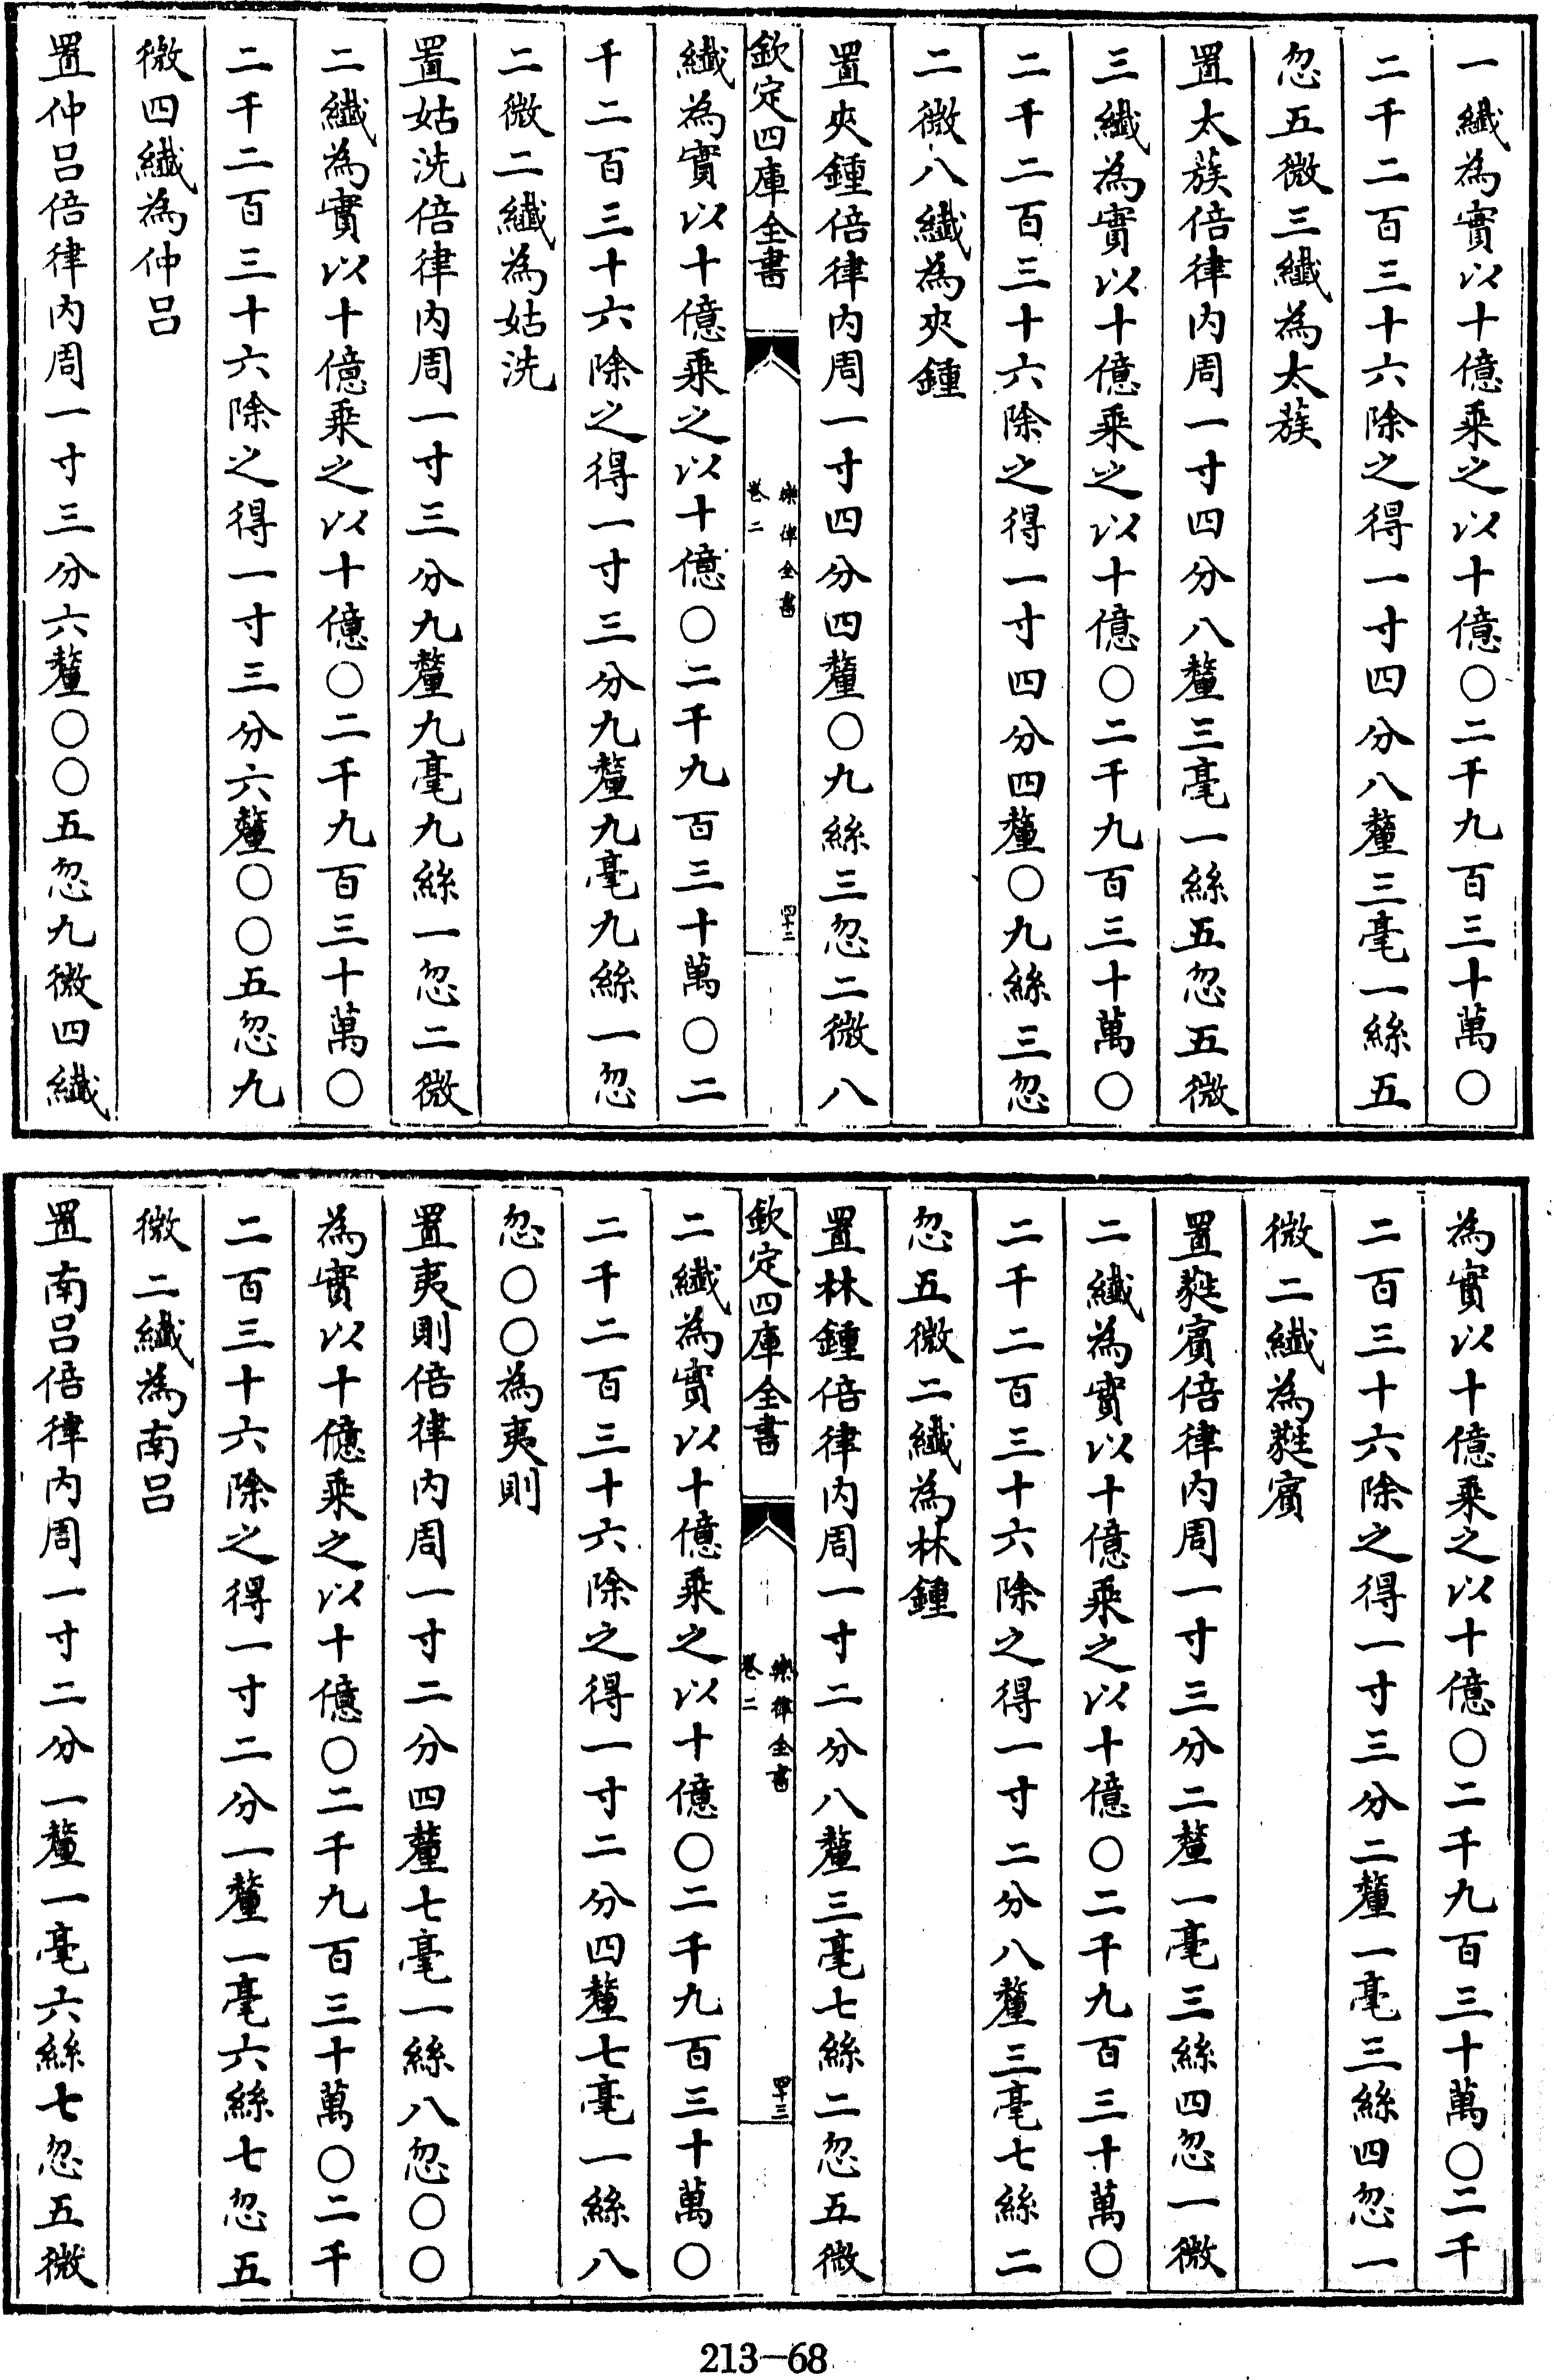 一纎為實以十億乗之以十億〇二千九百三十萬〇
二千二百三十六除之得一寸四分八釐三毫一絲五
忽五微三纎為太蔟
置太蔟倍律内周一寸四分八釐三毫一絲五忽五微
三纎為實以十億乗之以十億〇二千九百三十萬〇
二千二百三十六除之得一寸四分四釐〇九絲三忽
二微八纎為夾鍾
置夾鍾倍律内周一寸四分四釐〇九絲三忽二微八
欽定四庫全書
樂律全書
卷二
四十二
纎為實以十億乗之以十億〇二千九百三十萬〇二
千二百三十六除之得一寸三分九釐九毫九絲一忽
二微二纎為姑洗
置姑洗倍律内周一寸三分九釐九毫九絲一忽二微
二纎為實以十億乗之以十億〇二千九百三十萬〇
二千二百三十六除之得一寸三分六釐〇〇五忽九
微四纎為仲吕
置仲吕倍律内周一寸三分六釐〇〇五忽九微四纎
為實以十億乗之以十億〇二千九百三十萬〇二千
二百三十六除之得一寸三分二釐一毫三絲四忽一
微二纎為蕤賓
置蕤賓倍律内周一寸三分二釐一毫三絲四忽一微
二纎為實以十億乗之以十億〇二千九百三十萬〇
二千二百三十六除之得一寸二分八釐三毫七絲二
忽五微二纎為林鍾
置林鍾倍律内周一寸二分八釐三毫七絲二忽五微
欽定四庫全書
樂律全書
卷二
四十三
二纎為實以十億乗之以十億〇二千九百三十萬〇
二千二百三十六除之得一寸二分四釐七毫一絲八
忽〇〇為夷則
置夷則倍律内周一寸二分四釐七毫一絲八忽〇〇
為實以十億乗之以十億〇二千九百三十萬〇二千
二百三十六除之得一寸二分一釐一毫六絲七忽五
微二纎為南吕
置南吕倍律内周一寸二分一釐一毫六絲七忽五微
213-68